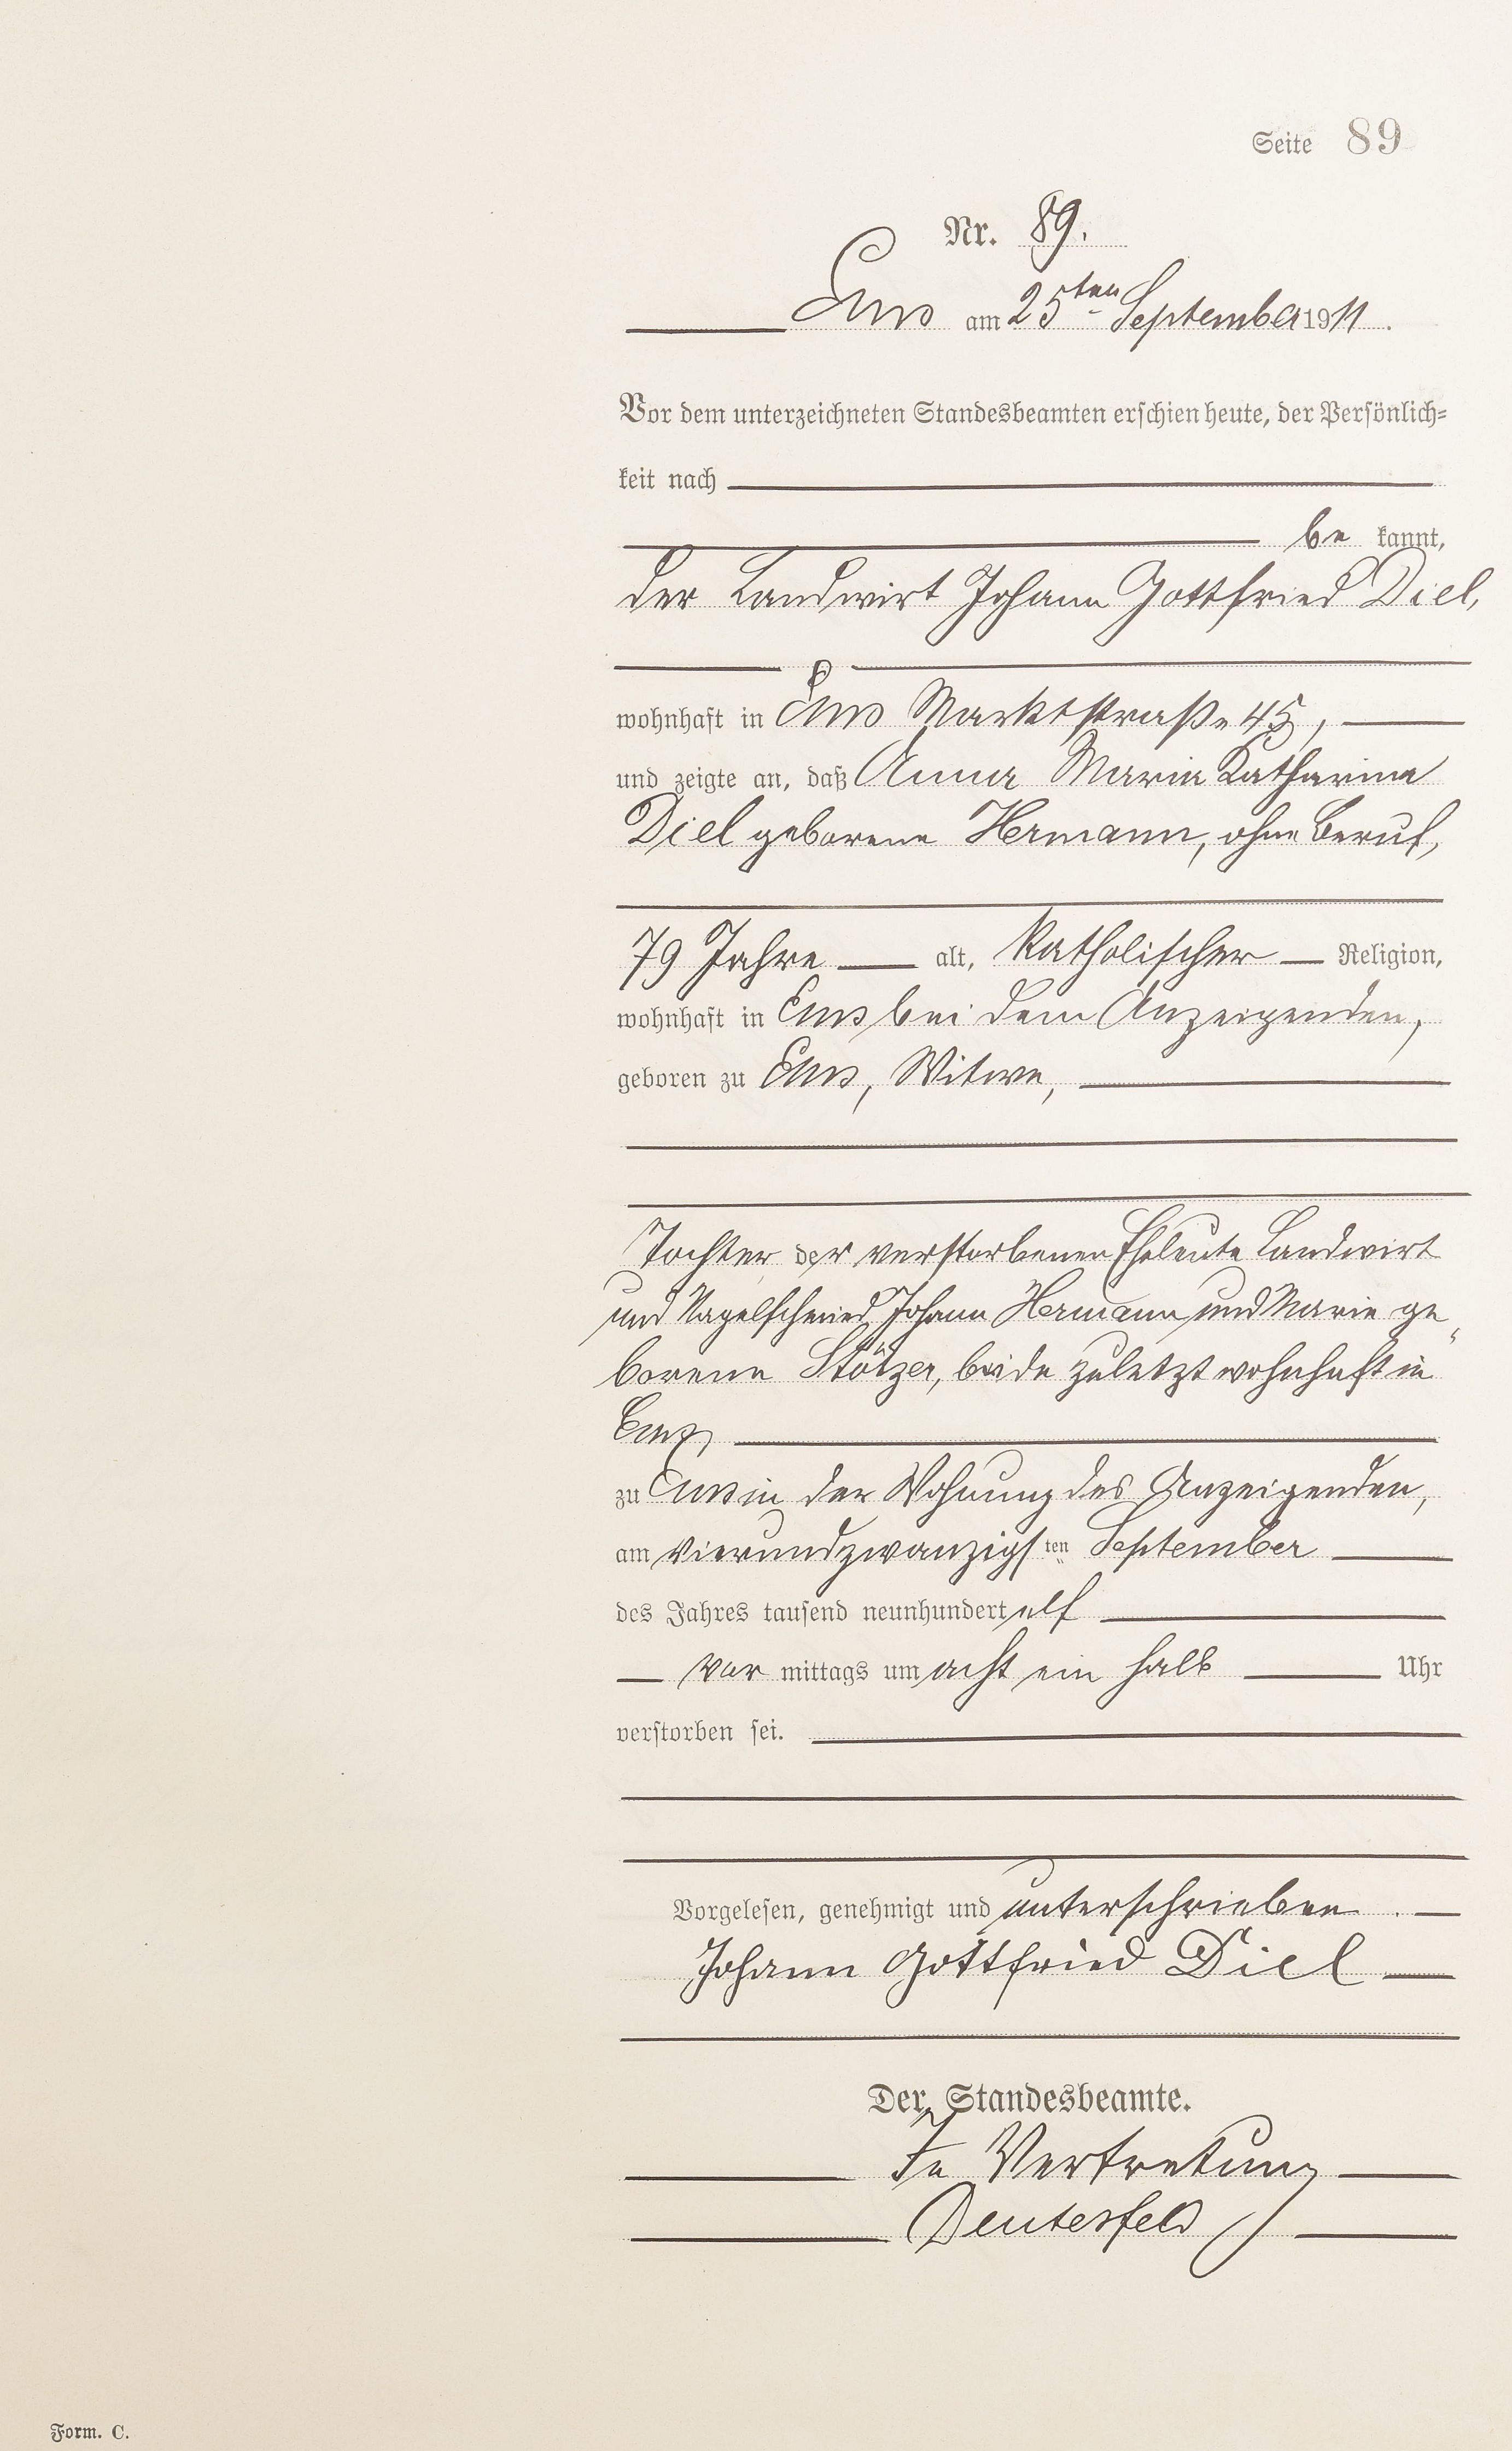 Seite 89
Nr. 89.
Ems am 25ten September 1911.
Vor dem unterzeichneten Standesbeamten erschien heute, der Persönlich-
keit nach
be kannt,
der Landwirt Johann Gottfried Diel,
wohnhaft in Ems Marktstraße 45,
und zeigte an, daß Anna Maria Katharina
Diel geborene Hermann, ohne Beruf,
79 Jahre alt, katholischer Religion,
wohnhaft in Ems bei dem Anzeigenden,
geboren zu Ems, Witwe,
Tochter der verstorbenen Eheleute Landwirt
und Nagelschmied Johann Hermann und Marie ge„
borene Stötzer, beide zuletzt wohnhaft in
Ems,
zu Ems in der Wohnung des Anzeigenden,
am vierundzwanzigsten September
des Jahres tausend neunhundert elf
vor mittags um acht ein halb Uhr
verstorben sei.
Vorgelesen, genehmigt und unterschrieben.
Johann Gottfried Diel
Der Standesbeamte.
In Vertretung
Deutesfeld
Form. C.